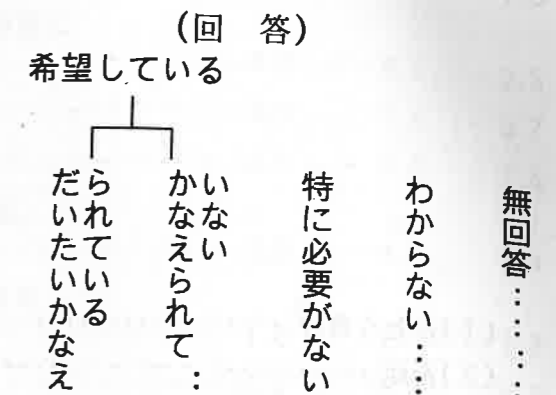 (回　答)
希望している
だいたいかなえ
られている
かなえられて…
いない
特に必要がない
わからない……
無回答……